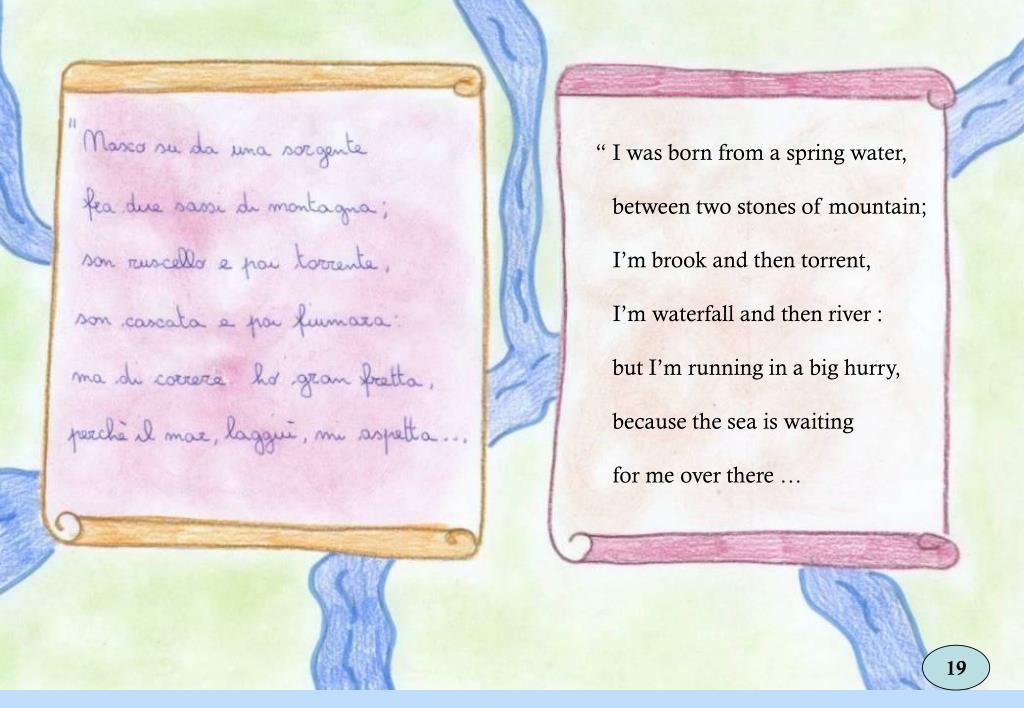 " Nasco su da una sorgente
fra due sassi di montagna;
son ruscello e poi torrente,
son cascata e poi fiumara:
ma di correre ho gran fretta,
perchè il mar, laggiù, mi aspetta...
“ I was born from a spring water,
between two stones of mountain;
I’m brook and then torrent,
I’m waterfall and then river :
but I’m running in a big hurry,
because the sea is waiting
for me over there …
19